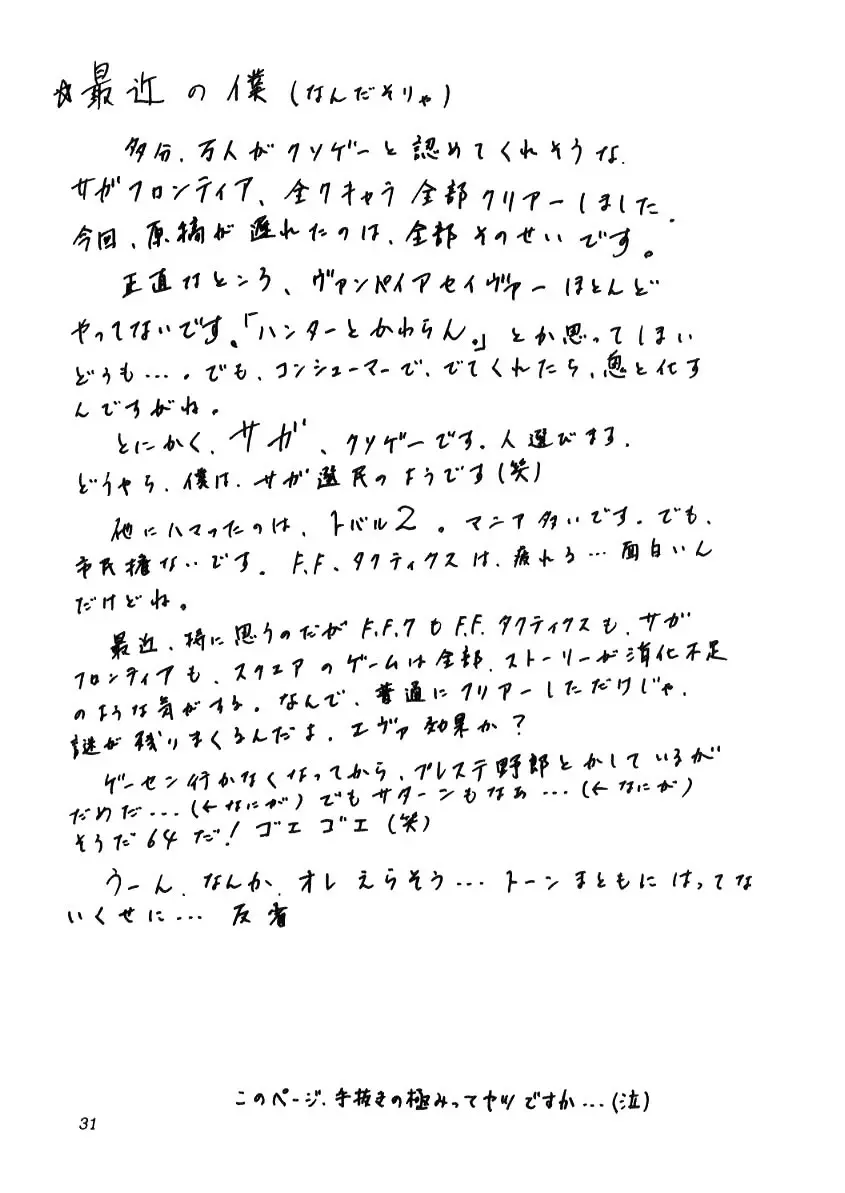 ☆最近の僕(なんだそりゃ)
多分、万人がクソゲーと認めてくれそうな、
サガフロンティア、全クキャラ全部クリアーしました。
今回、原稿が遅れたのは、全部そのせいです。
正直なところ、ヴァンパイアセイヴァーほとんど
やってないです。「ハンターとかわらん。」とか思ってしまい
どうも…。でも、コンシューマーで、でてくれたら、鬼と化す
んですがね。
とにかく、サガ、クソゲーです。人選びまる。
どうやら、僕は、サガ選民のようです(笑)
他にハマったのは、トバル2。マニア多いです。でも、
市民権ないです。F.F.タクティクスは、疲れる…面白いん
だけどね。
最近、特に思うのだがF.F.7もF.F.タクティクスも、サガ
フロンティアも、スクエアのゲームは全部、ストーリーが消化不足
のような気がする。なんで、普通にクリアーしただけじゃ、
謎が残りまくるんだよ。エヴァ効果か?
ゲーセン行かなくなってから、プレステ野郎とかしているが
だめだ…(←なにが)でもサターンもなぁ…(←なにが)
そうだ64だ!ゴエゴエ(笑)
うーん、なんか、オレえらそう…トーンまともにはってな
いくせに…反省
このページ、手抜きの極みってヤツですか…(泣)
31